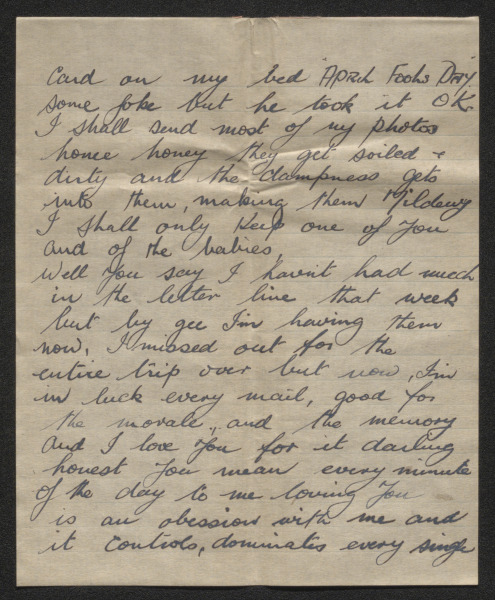 Card on my bed "APRIL Fools DAY"
some joke but he took it OK.
I shall send most of my photos
home honey they get soiled +
dirty and the dampness gets
into them, making them Mildewy
I shall only keep one of you
and of the babies,
Well you say I havn't had much
in the letter line that week
but by gee I'm having them
now, I missed out for the
entire trip over but now, I'm
in luck every mail, good for
the morale, and the memory
and I love you for it darling
honest you mean every minute
of the day to me loving you
is an obession with me and
it controls, dominates every single